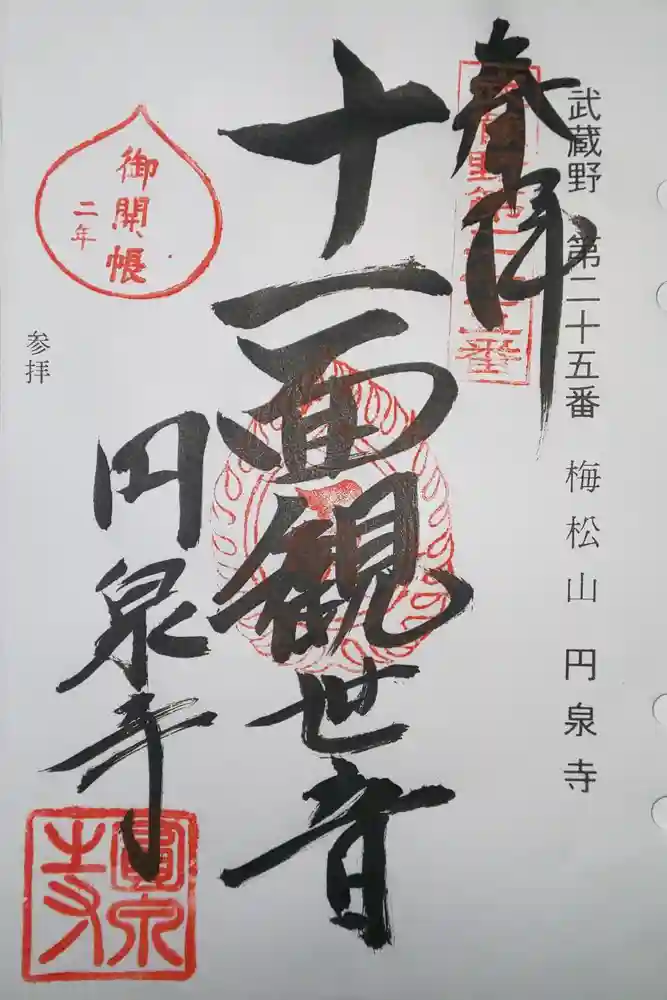 武蔵野 第二十五番 梅松山 円泉寺
奉拝
武蔵野第二十五番
十一面観世音
御開帳
二年
参拝
円泉寺
圓泉寺